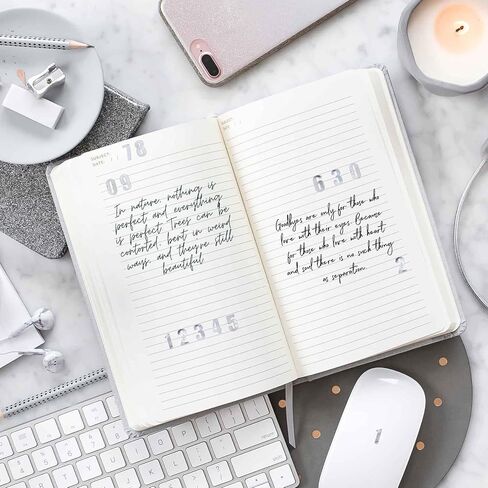 SUBJECT:
DATE:
78
09
In nature, nothing is
perfect and everything
is perfect. Trees can be
contorted, bent in weird
ways, and they're still
beautiful
12345
630
Goodbyes are only for those who
love with their eyes. Because
for those who love with heart
and soul there is no such thing
as separation.
2